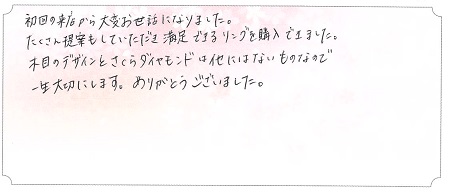 初回の来店から大変お世話になりました。
たくさん提案もしていただき満足できるリングを購入できました。
木目のデザインとさくらダイヤモンドは他にはないものなので
一生大切にします。ありがとうございました。